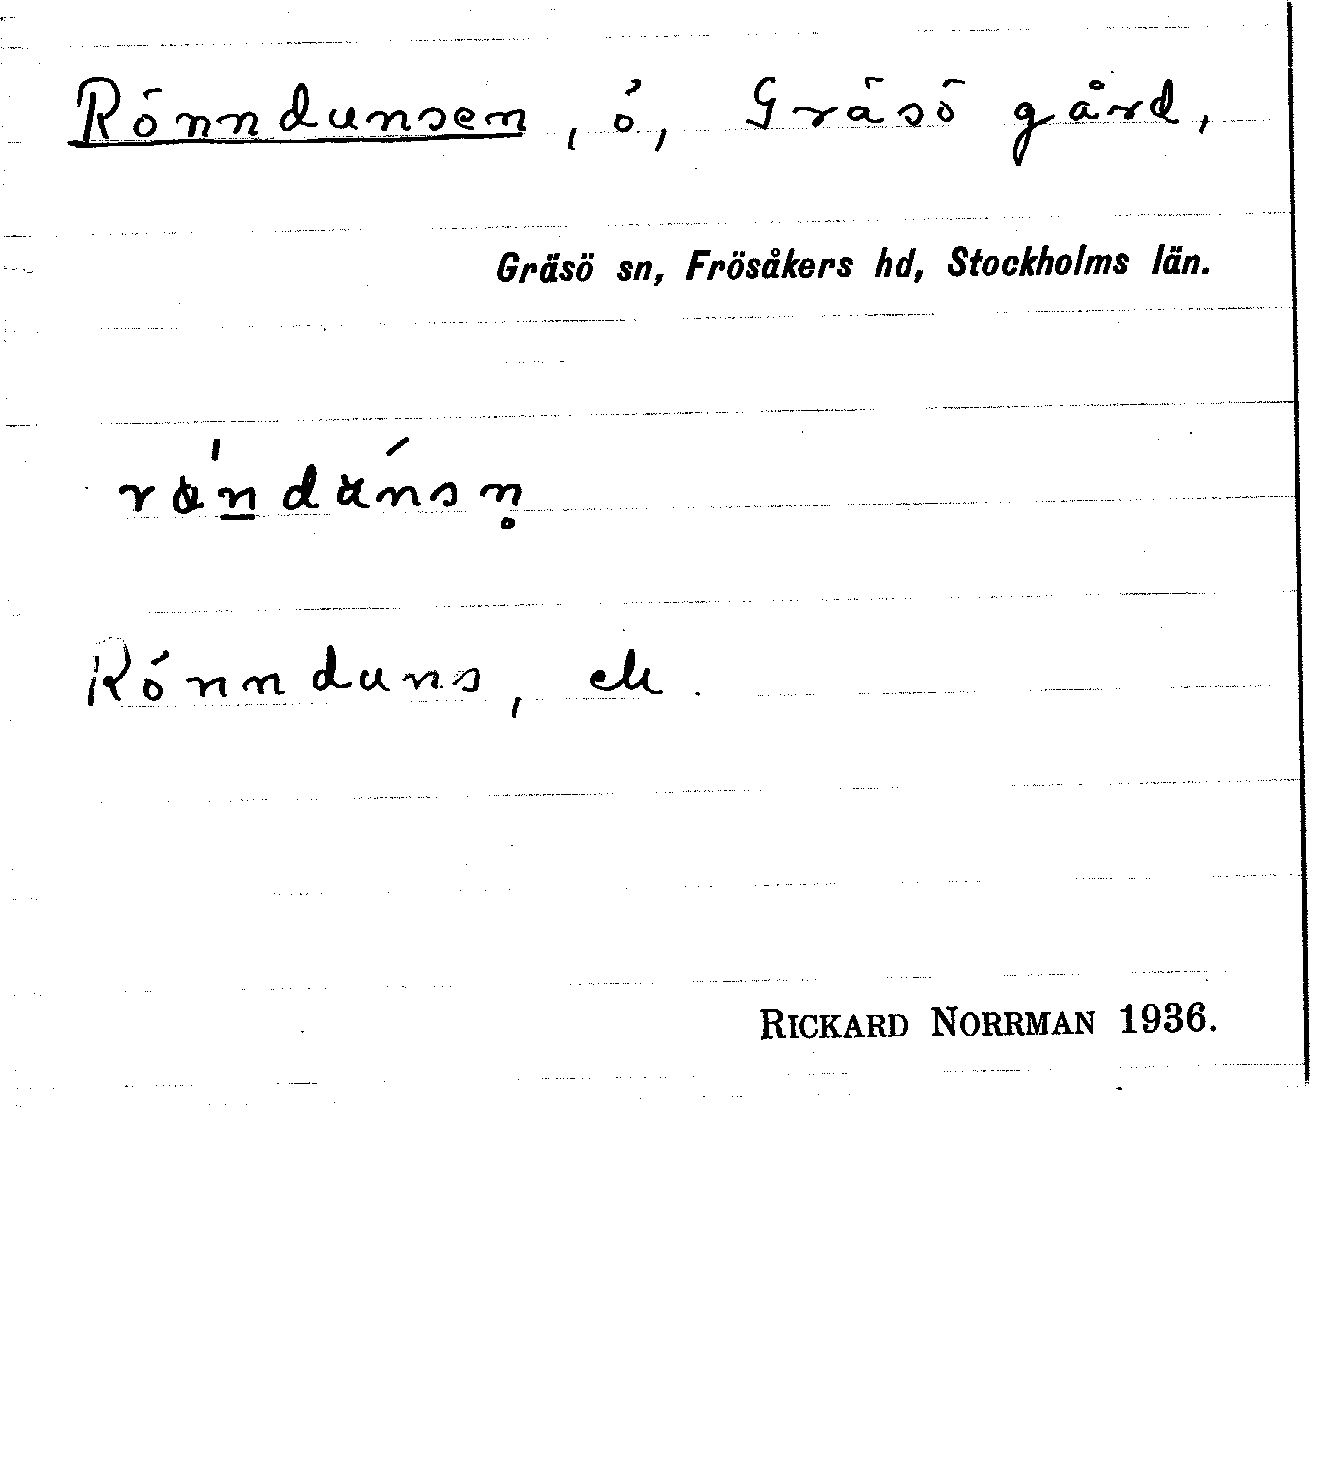 Rönndunsen, ö, Gräsö gård,
Gräsö sn, Frösåkers hd, Stockholms län.
Rönnduns, ek.
RICKARD NORRMAN 1936.